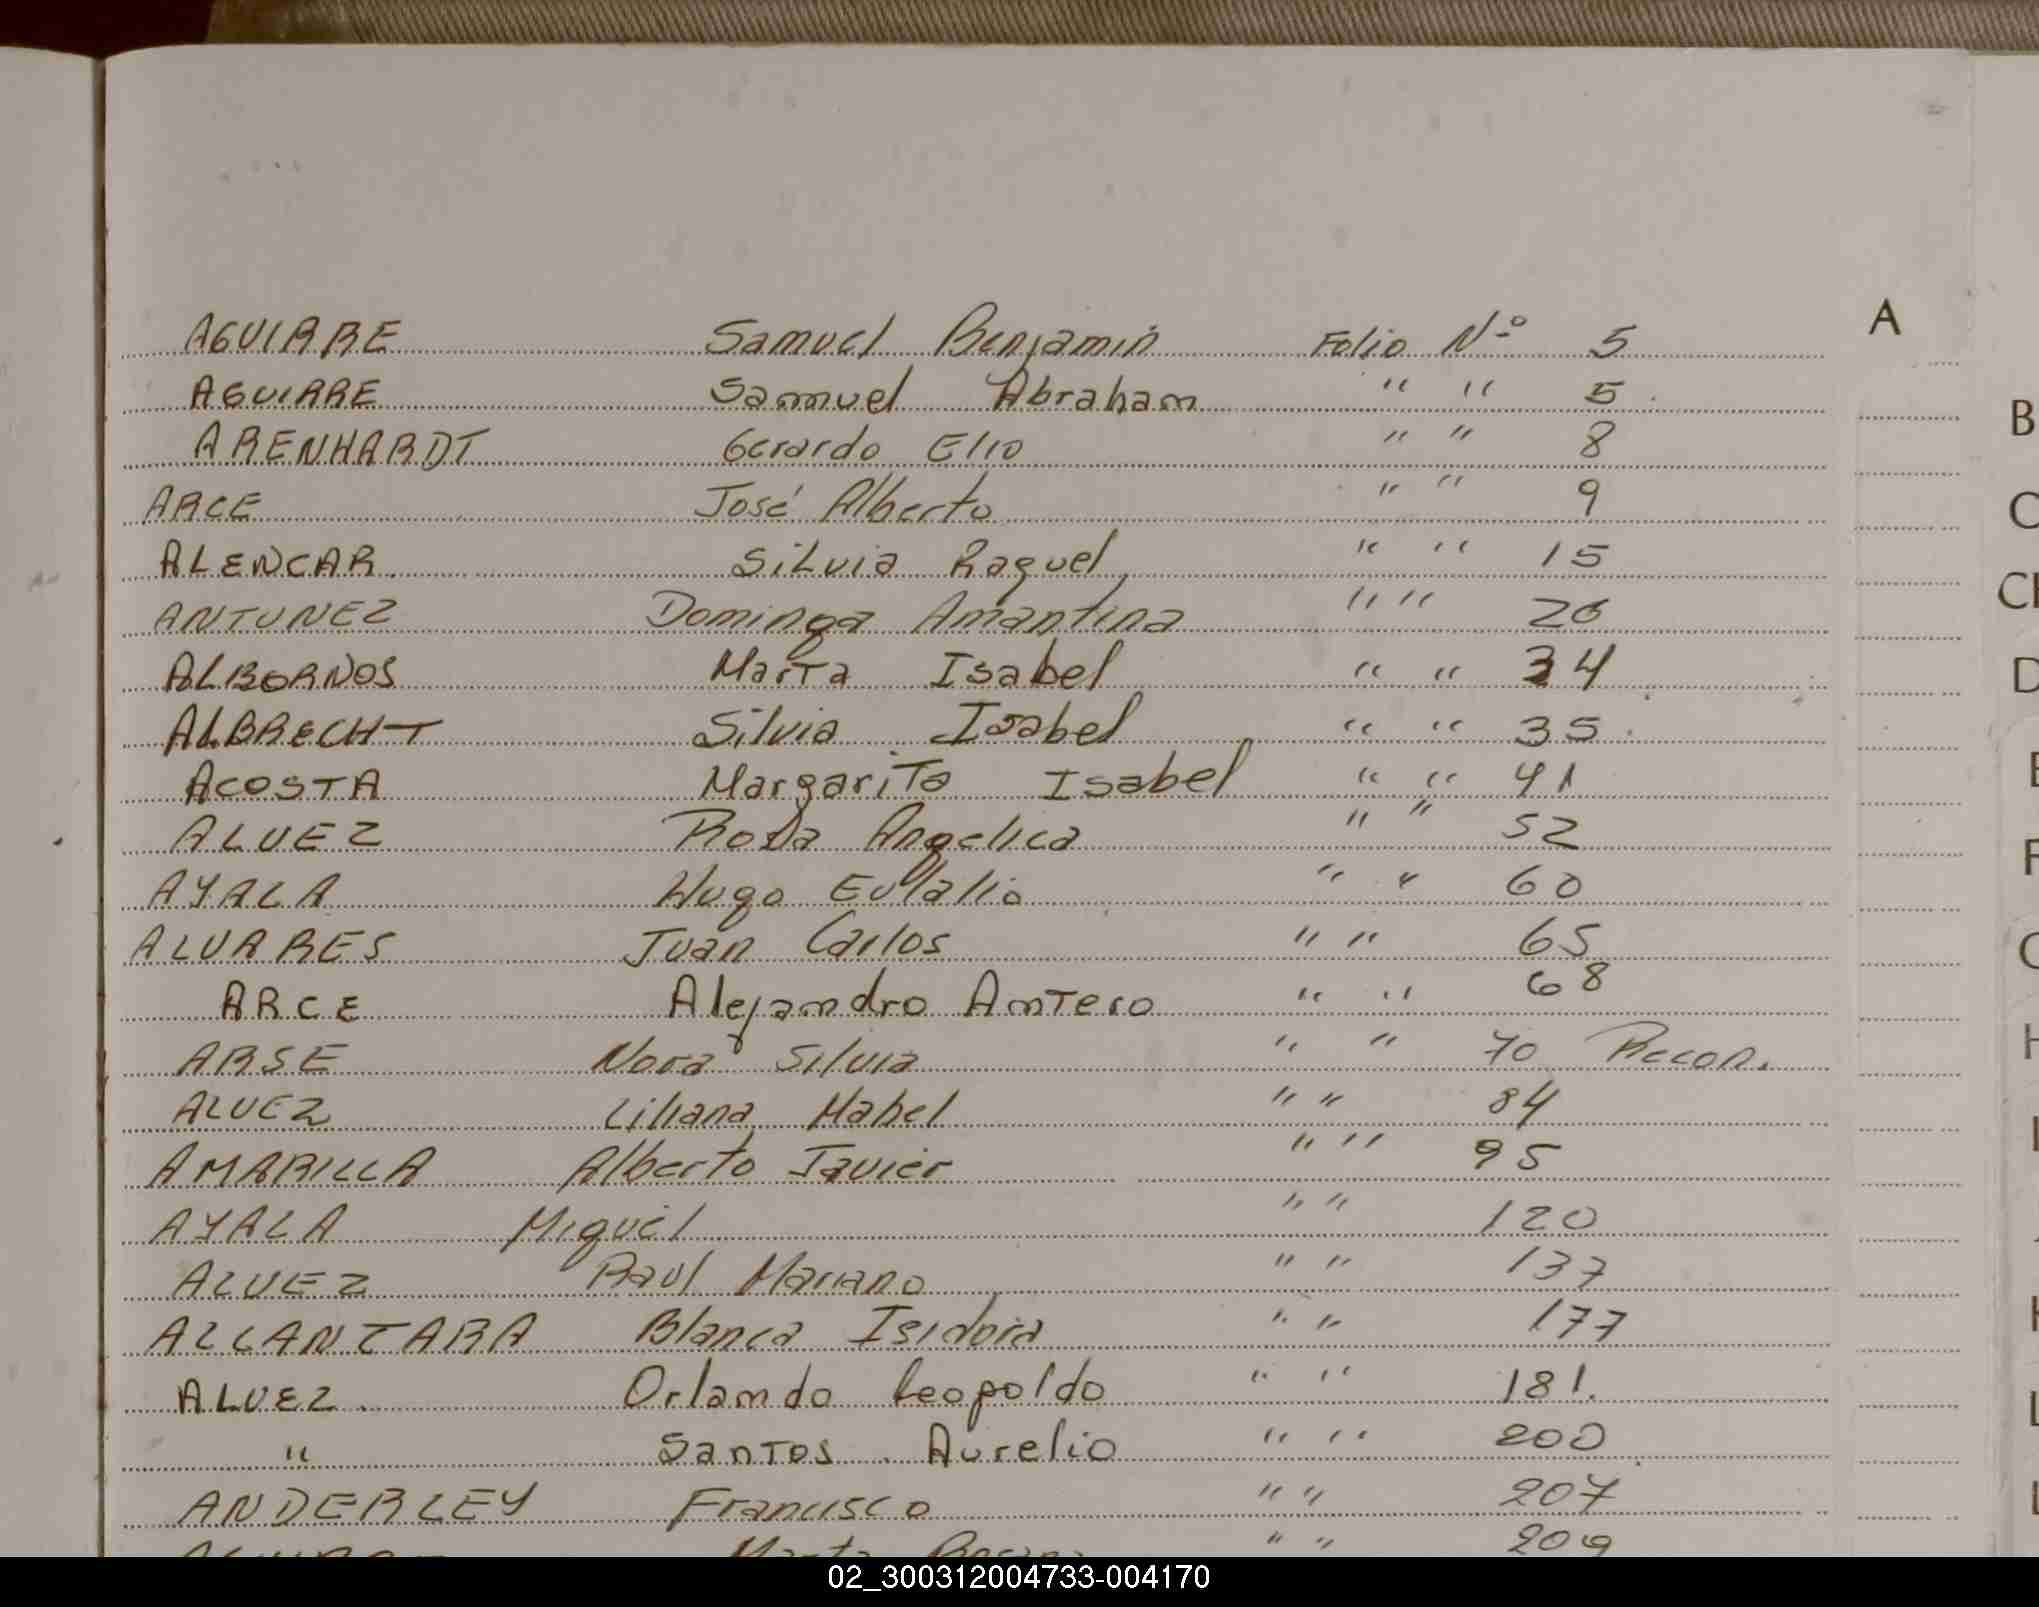 AGUIRRE Samuel Benjamin Folio Nº 5 A
AGUIRRE Sammuel Abraham " " 5
ARENHARDT Gerardo Elio " " 8 B
ARCE José Alberto " " 9 C
ALENCAR Silvia Raquel " " 15
ANTUNEZ Dominga Amantina " " 26
ALBORNOS Marta Isabel " " 34 D
ALBRECHT Silvia Isabel " " 35
ACOSTA Margarita Isabel " " 41
ALVEZ Rosa Angelica " " 52
AYALA Hugo Eulalio " " 60
ALVARES Juan Carlos " " 65
ARCE Alejandro Antero " " 68
ARSE Nora Silvia " " 70 Recon.
ALVEZ Liliana Mabel " " 84
AMARILLA Alberto Javier " " 95
AYALA Miguel " " 120
ALVEZ Raul Mariano " " 137
ALCANTARA Blanca Isidora " " 177
ALVEZ Orlando Leopoldo " " 181.
" Santos Aurelio " " 200
ANDERLEY Francisco " " 207
" " 209
02_300312004733-004170